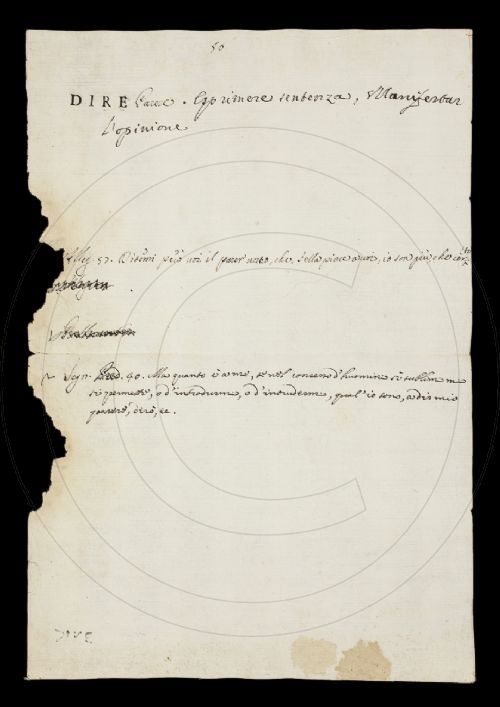 50
DIRE Parere. Esprimere sentenza, Manifestar
l'opinione
57. Ditemi però voi il parer vostro, che, s'ella piace a voi, io son più che
Segn. 40. Ma quanto è a me, se nel concerto d'huomini sì sublimi me
si permette, o d'introdurmi, o d'intrudermi, qual'io sono, a dir mio
parere, dirò, ec.
DIRE